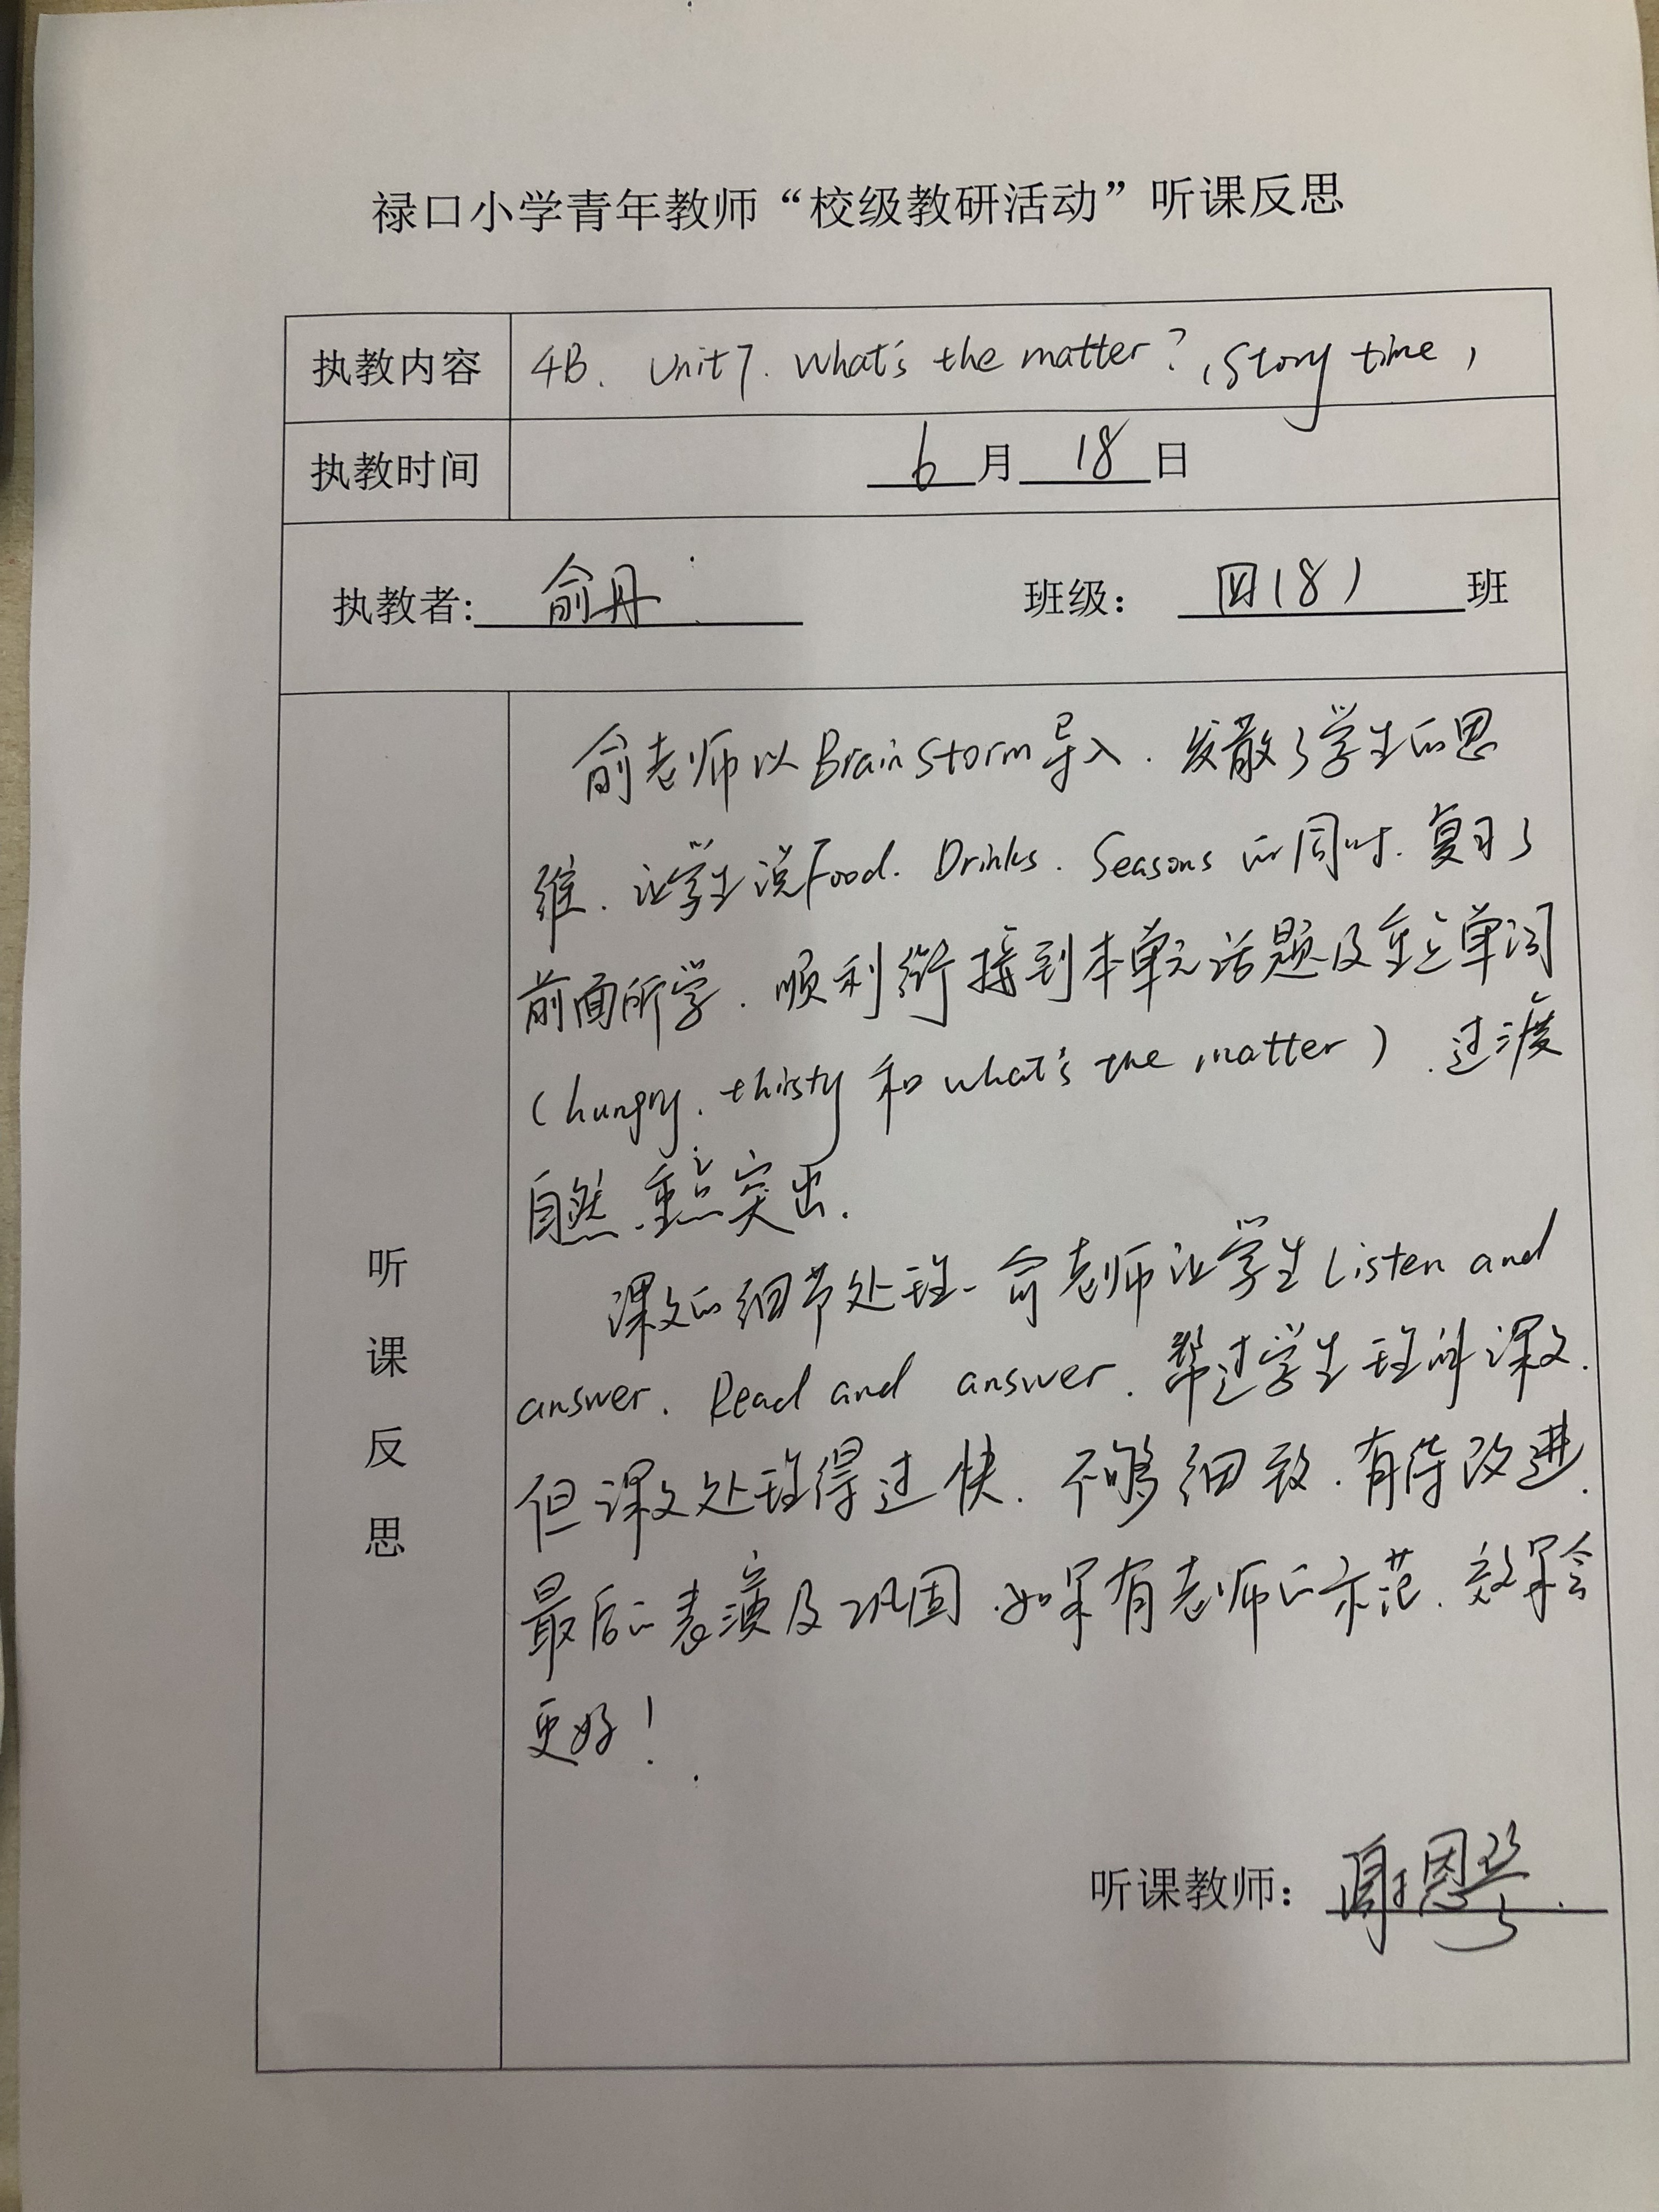 禄口小学青年教师“校级教研活动”听课反思
执教内容 4B. Unit7. What's the matter? (Story time)
执教时间 6月18日
执教者: 俞丹 班级: 四(8)班
听课反思
俞老师以BrainStorm导入.发散了学生的思
维.让学生说Food. Drinks. Seasons的同时.复习了
前面所学.顺利衔接到本单元话题及重点单词
(hungry. thirsty和what's the matter).过渡
自然.重点突出.
课文的细节处理.俞老师让学生Listen and
answer. Read and answer. 帮过学生理解课文.
但课文处理得过快.不够细致.有待改进.
最后的表演及巩固.如果有老师的示范.效果会
更好!
听课教师: 谢恩